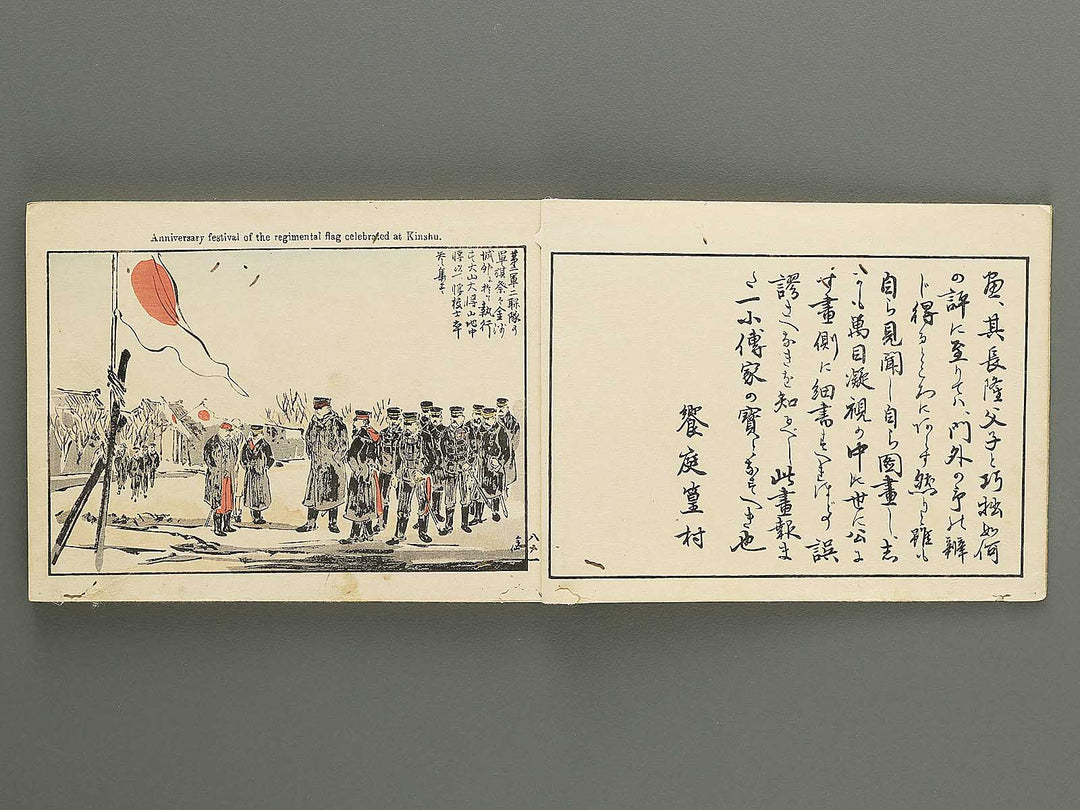 畫、其長隆父子と巧拙如何
の評に至りてハ、門外の予の辨
じ得るところにあらず然りと雖も
自ら見聞し自ら圖畫し、志
かも萬目凝視の中に世に公に
す畫側に細書の誤
謬さへなきを知るべし此畫報ま
た一小傳家の寶となすべき也
饗庭篁村
Anniversary festival of the regimental flag celebrated at Kinshu.
第二軍二聯隊の
軍旗祭を金州
城外に於て執行
す大山大将山地中
将以下将校士卒
参集す